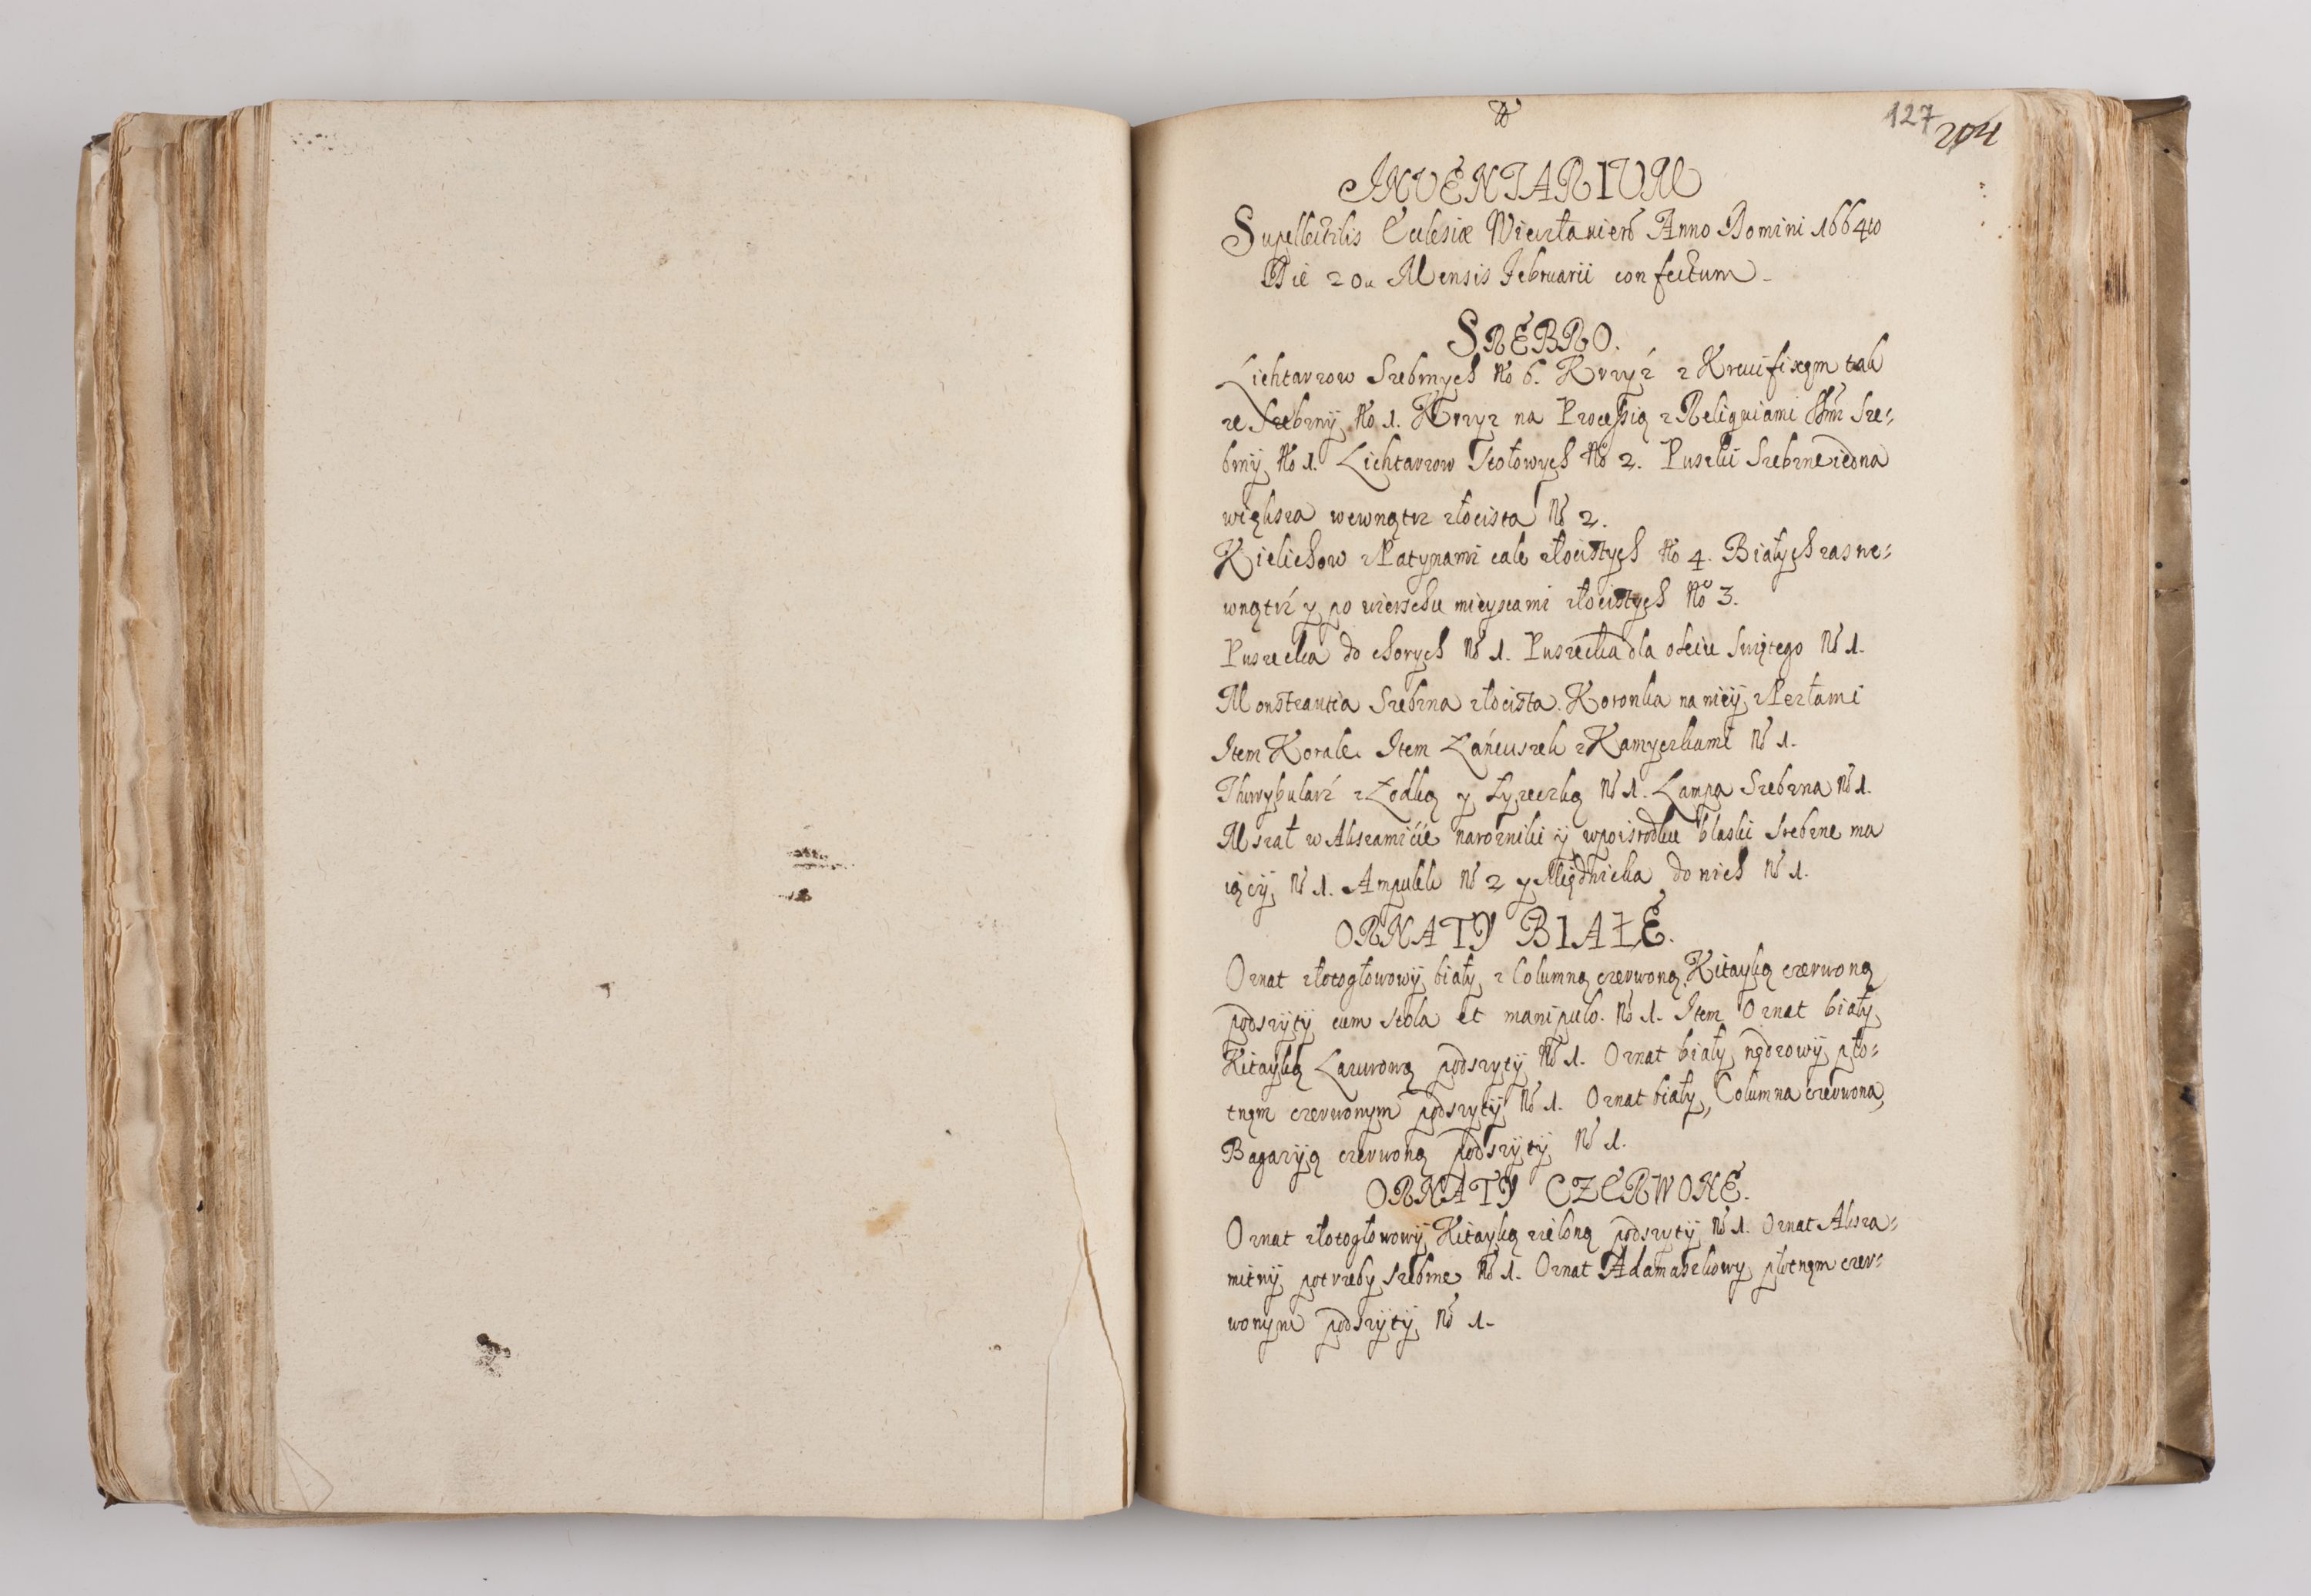 127
204
INVENTARIUM
Supellectilis Ecclesiæ Anno Domini 1664to
Die 20a Mensis Februarii confectum
SREBRO.
Lichtarzow Srebrnych No 6. Krzyż z Krucifixem tak
ze Srebrnÿ No 1. Krzyz na Processią z Reliquiami Sre=
brnÿ No 1. Lichtarzow Stołowych No 2. Puszki Srebrne iedna
większa wewnątrz złocista No 2.
Kielichow z Patynami cale złocistych No 4. Białych zas we=
wnątrz y po wierzchu mieyscami złocistych No 3.
Puszecka do chorych No 1. Puszecka dla oleiu Swiętego No 1.
Monstrantia Srebrna złocista. Koronka na nieÿ z Perłami
Item Korale. Item Łańcuszek z Kamyczkami No 1.
Thurybularz z Łodką y Łyzeczką No 1. Lampa Srebrna No 1.
Mszał w Aksamićie narozniki ÿ wpoisrodku blaski Srebrne ma
iącÿ No 1. Ampułek No 2 y Międnicka do nich No 1.
ORNATY BIAŁE.
Ornat złotogłowowÿ biały z Columną czerwoną, Kitayką czerwoną
podszÿtÿ cum stola et manipulo. No 1. Item Ornat biały
Kitayką Lazurową podszytÿ No 1. Ornat biały płó=
tnem czerwonym podszytÿ No 1. Ornat biały, Columna czerwona,
Bagazÿią czerwoną podszÿtÿ No 1.
ORNATY CZERWONE.
Ornat złotogłowowÿ Kitayką zieloną podszytÿ No 1. Ornat Aksa=
mitnÿ potrzeby srebrne No 1. Ornat Adamaszkowy płótnem czer=
wonym podszÿtÿ No 1.